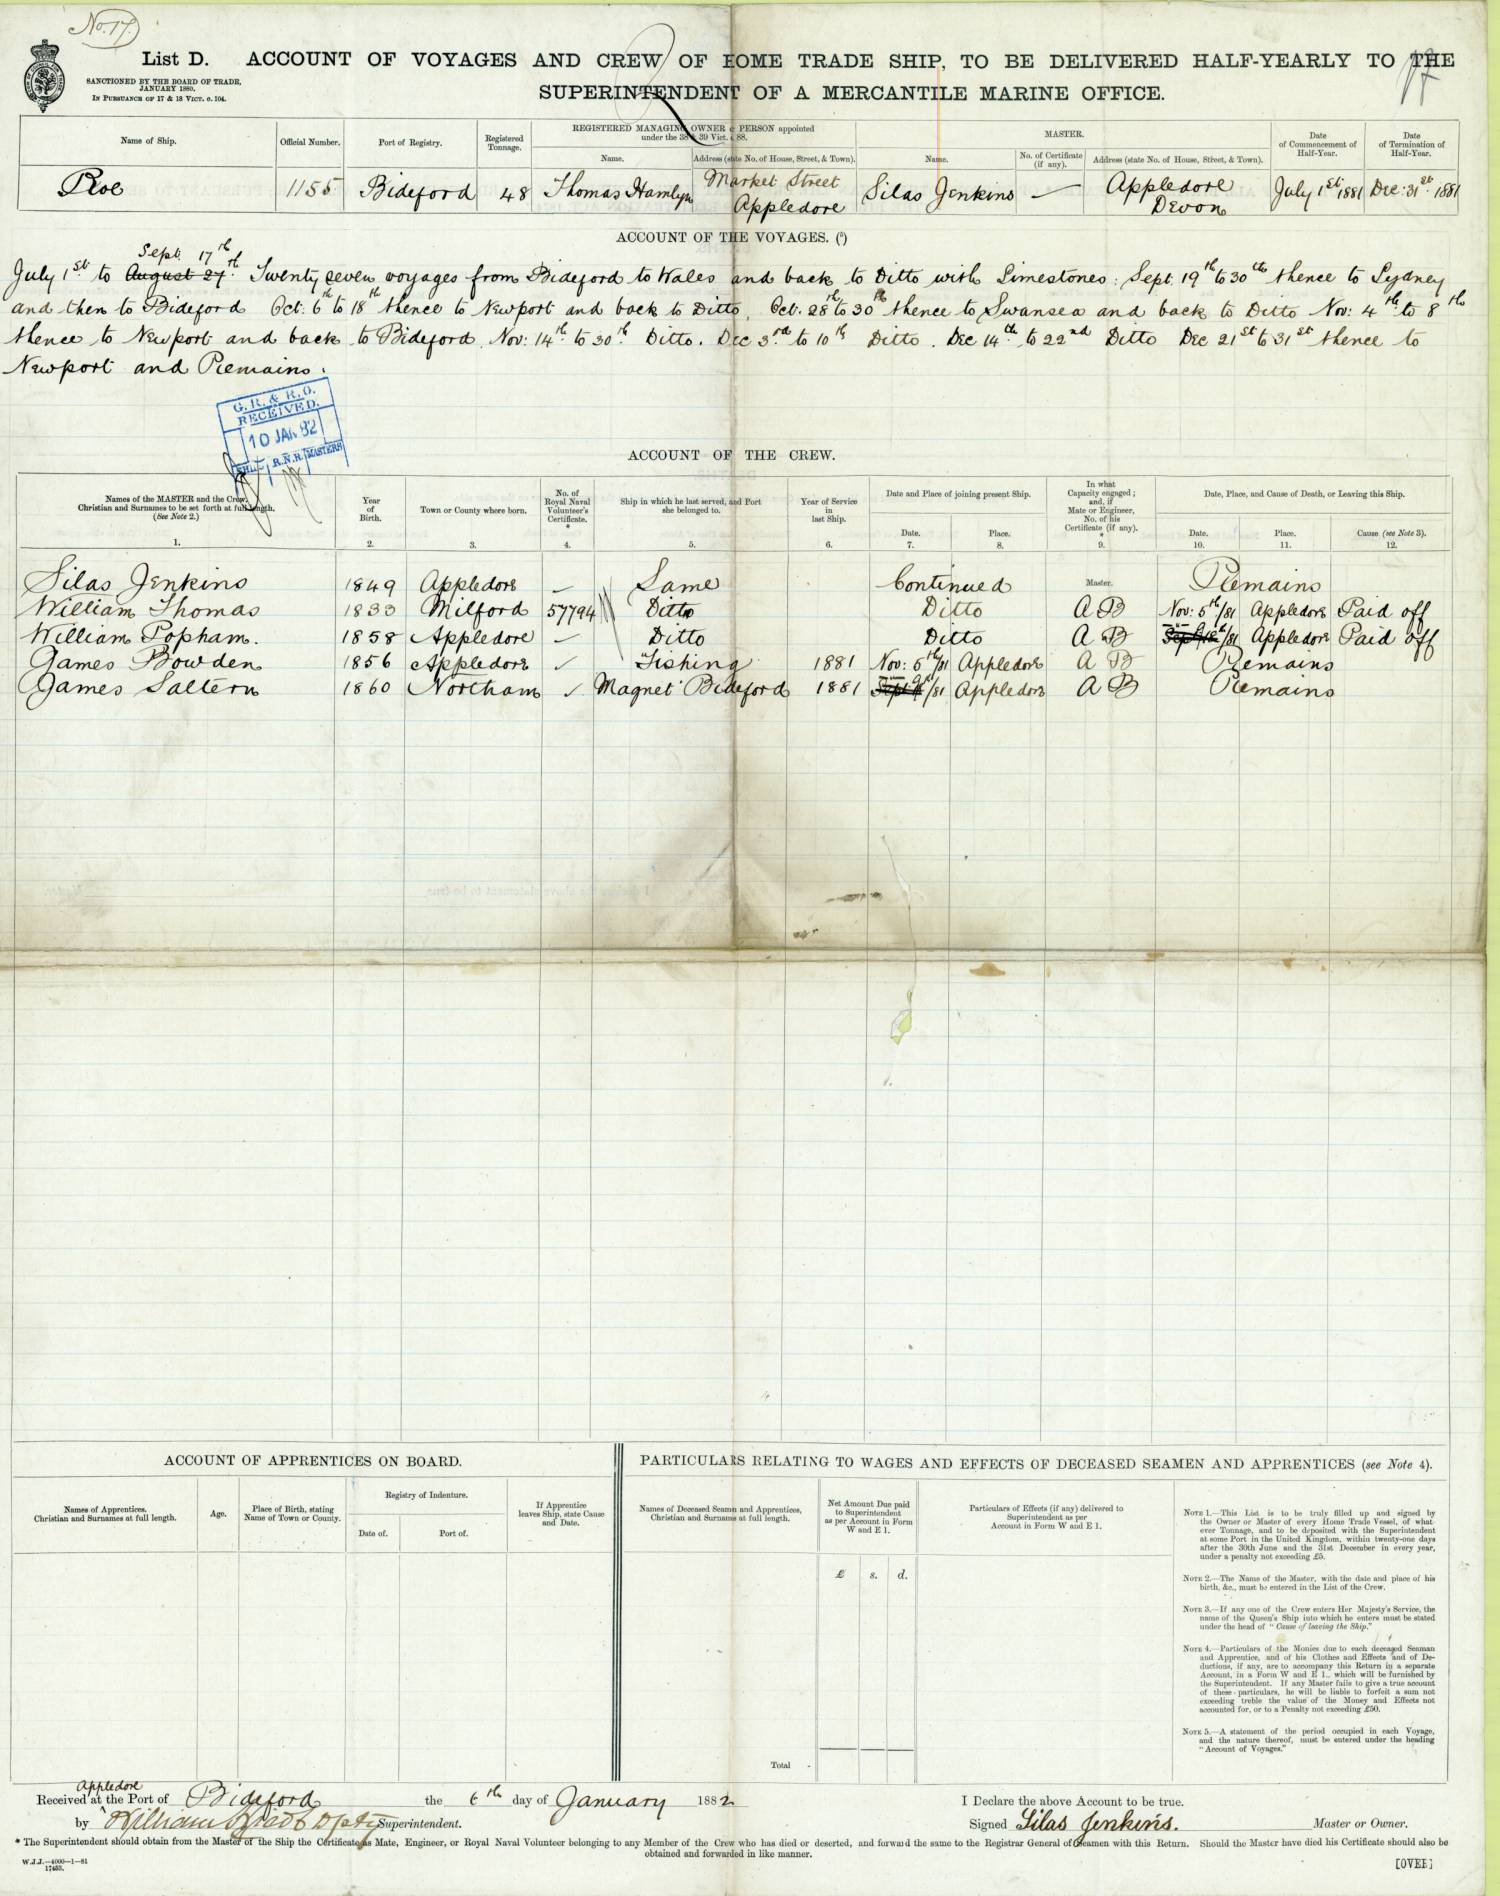 No. 17.
List D. ACCOUNT OF VOYAGES AND CREW OF HOME TRADE SHIP, TO BE DELIVERED HALF-YEARLY TO THE
SANCTIONED BY THE BOARD OF TRADE,
JANUARY 1880.
IN PURSUANCE OF 17 & 18 VICT. c. 104.
SUPERINTENDENT OF A MERCANTILE MARINE OFFICE.
Name of Ship. Official Number. Port of Registry. Registered Tonnage. REGISTERED MANAGING OWNER or PERSON appointed under the 38 & 39 Vict. c. 88. MASTER. Date of Commencement of Half-Year. Date of Termination of Half-Year.
Name. Address (state No. of House, Street, & Town). Name. No. of Certificate (if any). Address (state No. of House, Street, & Town).
Roe 1155 Bideford 48 Thomas Hamlyn Market Street Appledore Silas Jenkins — Appledore Devon July 1st 1881 Dec: 31st 1881
ACCOUNT OF THE VOYAGES. (5)
Sept. 17th
July 1st to August 27th Twenty seven voyages from Bideford to Wales and back to Ditto with Limestones: Sept. 19th to 30th thence to Lydney
and then to Bideford Oct: 6th to 18th thence to Newport and back to Ditto, Oct: 28th to 30th thence to Swansea and back to Ditto Nov: 4th to 8th
thence to Newport and back to Bideford Nov: 14th to 30th Ditto. Dec 3rd to 10th Ditto. Dec 14th to 22nd Ditto Dec 21st to 31st thence to
Newport and Remains.
G. R. & R. O.
RECEIVED.
10 JAN 82
R.N.R. MASTERS
ACCOUNT OF THE CREW.
Names of the MASTER and the Crew, Christian and Surnames to be set forth at full length. (See Note 2.) Year of Birth. Town or County where born. No. of Royal Naval Volunteer's Certificate. * Ship in which he last served, and Port she belonged to. Year of Service in last Ship. Date and Place of joining present Ship. In what Capacity engaged; and, if Mate or Engineer, No. of his Certificate (if any). * Date, Place, and Cause of Death, or Leaving this Ship.
Date. Place. Date. Place. Cause (see Note 3).
1. 2. 3. 4. 5. 6. 7. 8. 9. 10. 11. 12.
Silas Jenkins 1849 Appledore — Same Continued Master. Remains
William Thomas 1833 Milford 57794 Ditto Ditto A B Nov: 5th/81 Appledore Paid off
William Popham. 1858 Appledore — Ditto Ditto A B Sept 18th/81 Appledore Paid off
James Bowden 1856 Appledore Fishing 1881 Nov: 5th/81 Appledore A B Remains
James Saltern 1860 Northam Magnet Bideford 1881 /81 Appledore A B Remains
ACCOUNT OF APPRENTICES ON BOARD.
Names of Apprentices. Christian and Surnames at full length. Age. Place of Birth, stating Name of Town or County. Registry of Indenture. If Apprentice leaves Ship, state Cause and Date.
Date of. Port of.
PARTICULARS RELATING TO WAGES AND EFFECTS OF DECEASED SEAMEN AND APPRENTICES (see Note 4).
Names of Deceased Seamn and Apprentices, Christian and Surnames at full length. Net Amount Due paid to Superintendent as per Account in Form W and E 1. Particulars of Effects (if any) delivered to Superintendent as per Account in Form W and E 1.
£ s. d.
Total
NOTE 1.—This List is to be truly filled up and signed by
the Owner or Master of every Home Trade Vessel, of what-
ever Tonnage, and to be deposited with the Superintendent
at some Port in the United Kingdom, within twenty-one days
after the 30th June and the 31st December in every year,
under a penalty not exceeding £5.
NOTE 2.—The Name of the Master, with the date and place of his
birth, &c., must be entered in the List of the Crew.
NOTE 3.—If any one of the Crew enters Her Majesty's Service, the
name of the Queen's Ship into which he enters must be stated
under the head of "Cause of leaving the Ship."
NOTE 4.—Particulars of the Monies due to each deceased Seaman
and Apprentice, and of his Clothes and Effects and of De-
ductions, if any, are to accompany this Return in a separate
Account, in a Form W and E 1., which will be furnished by
the Superintendent. If any Master fails to give a true account
of these particulars, he will be liable to forfeit a sum not
exceeding treble the value of the Money and Effects not
accounted for, or to a Penalty not exceeding £50.
NOTE 5.—A statement of the period occupied in each Voyage,
and the nature thereof, must be entered under the heading
"Account of Voyages."
Appledore
Received at the Port of Bideford the 6th day of January 1882
by William Superintendent.
I Declare the above Account to be true.
Signed Silas Jenkins. Master or Owner.
* The Superintendent should obtain from the Master of the Ship the Certificate as Mate, Engineer, or Royal Naval Volunteer belonging to any Member of the Crew who has died or deserted, and forward the same to the Registrar General of Seamen with this Return. Should the Master have died his Certificate should also be
obtained and forwarded in like manner.
W.J.J.—4000—1—81
17453.
[OVER]